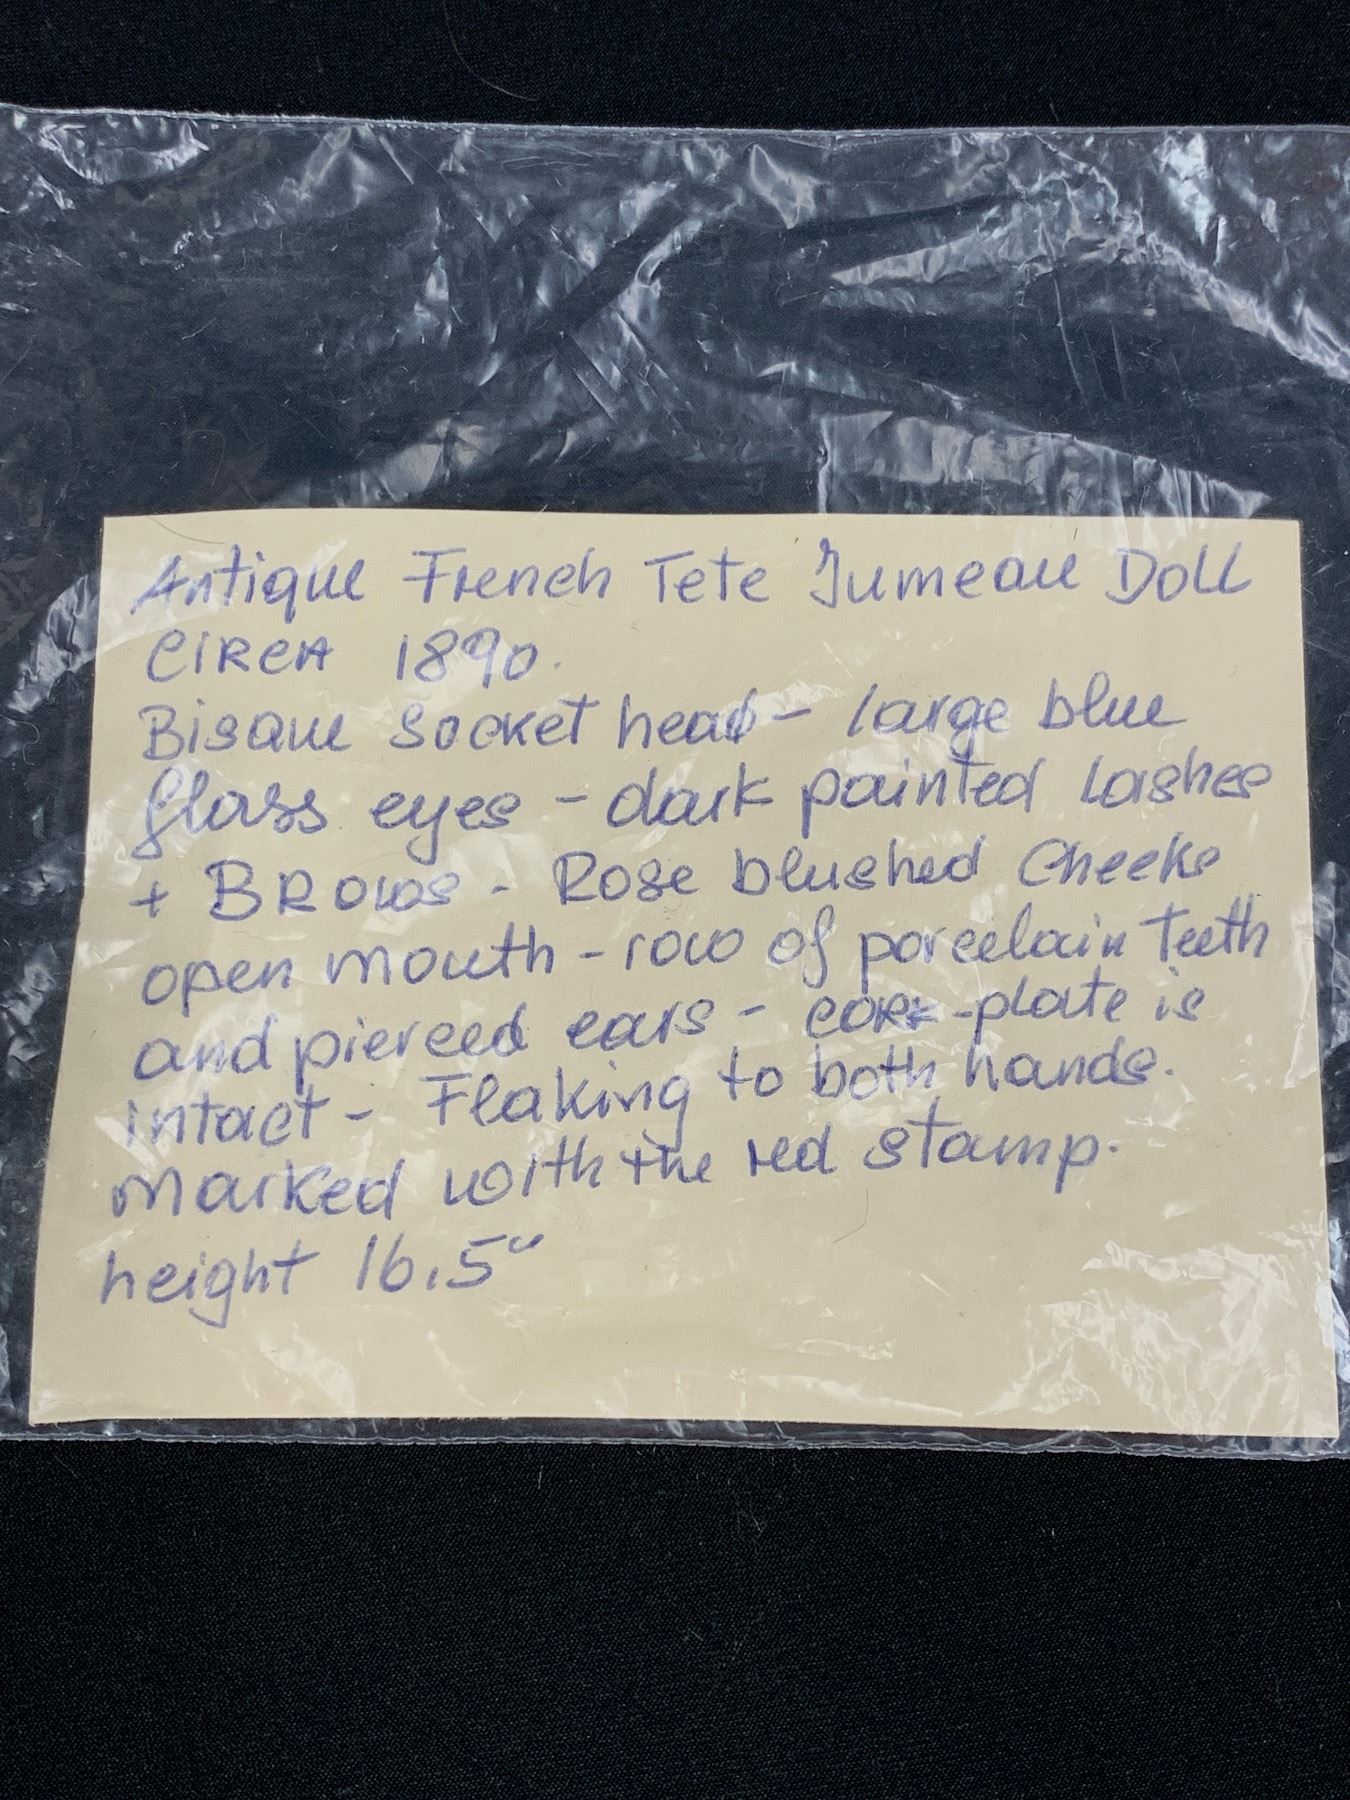 Antique French Tete Jumeau Doll
CIRCA 1890.
Bisque Socket head - large blue
glass eyes - dark painted lashes
+ BROWS - Rose blushed Cheeks
open mouth - row of porcelain teeth
and pierced ears - cork-plate is
intact - Flaking to both hands.
Marked with the red stamp.
height 16.5"